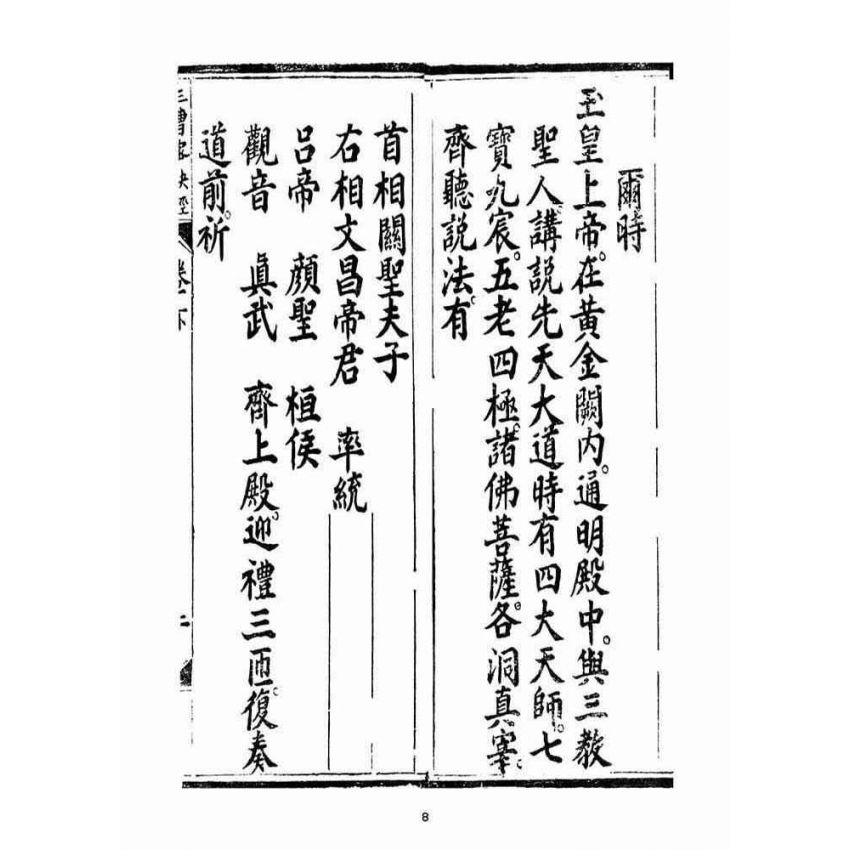 爾時
玉皇上帝。在黃金闕內。通明殿中。與三教
聖人。講說先天大道時有四大天師。七
寶九宸。五老四極。諸佛菩薩。各洞真宰。
齊聽說法。有
首相關聖夫子
右相文昌帝君　率統
呂帝　顏聖　桓侯
觀音　真武　齊上殿。迎禮三匝。復奏
道前。祈
卷下
二
8